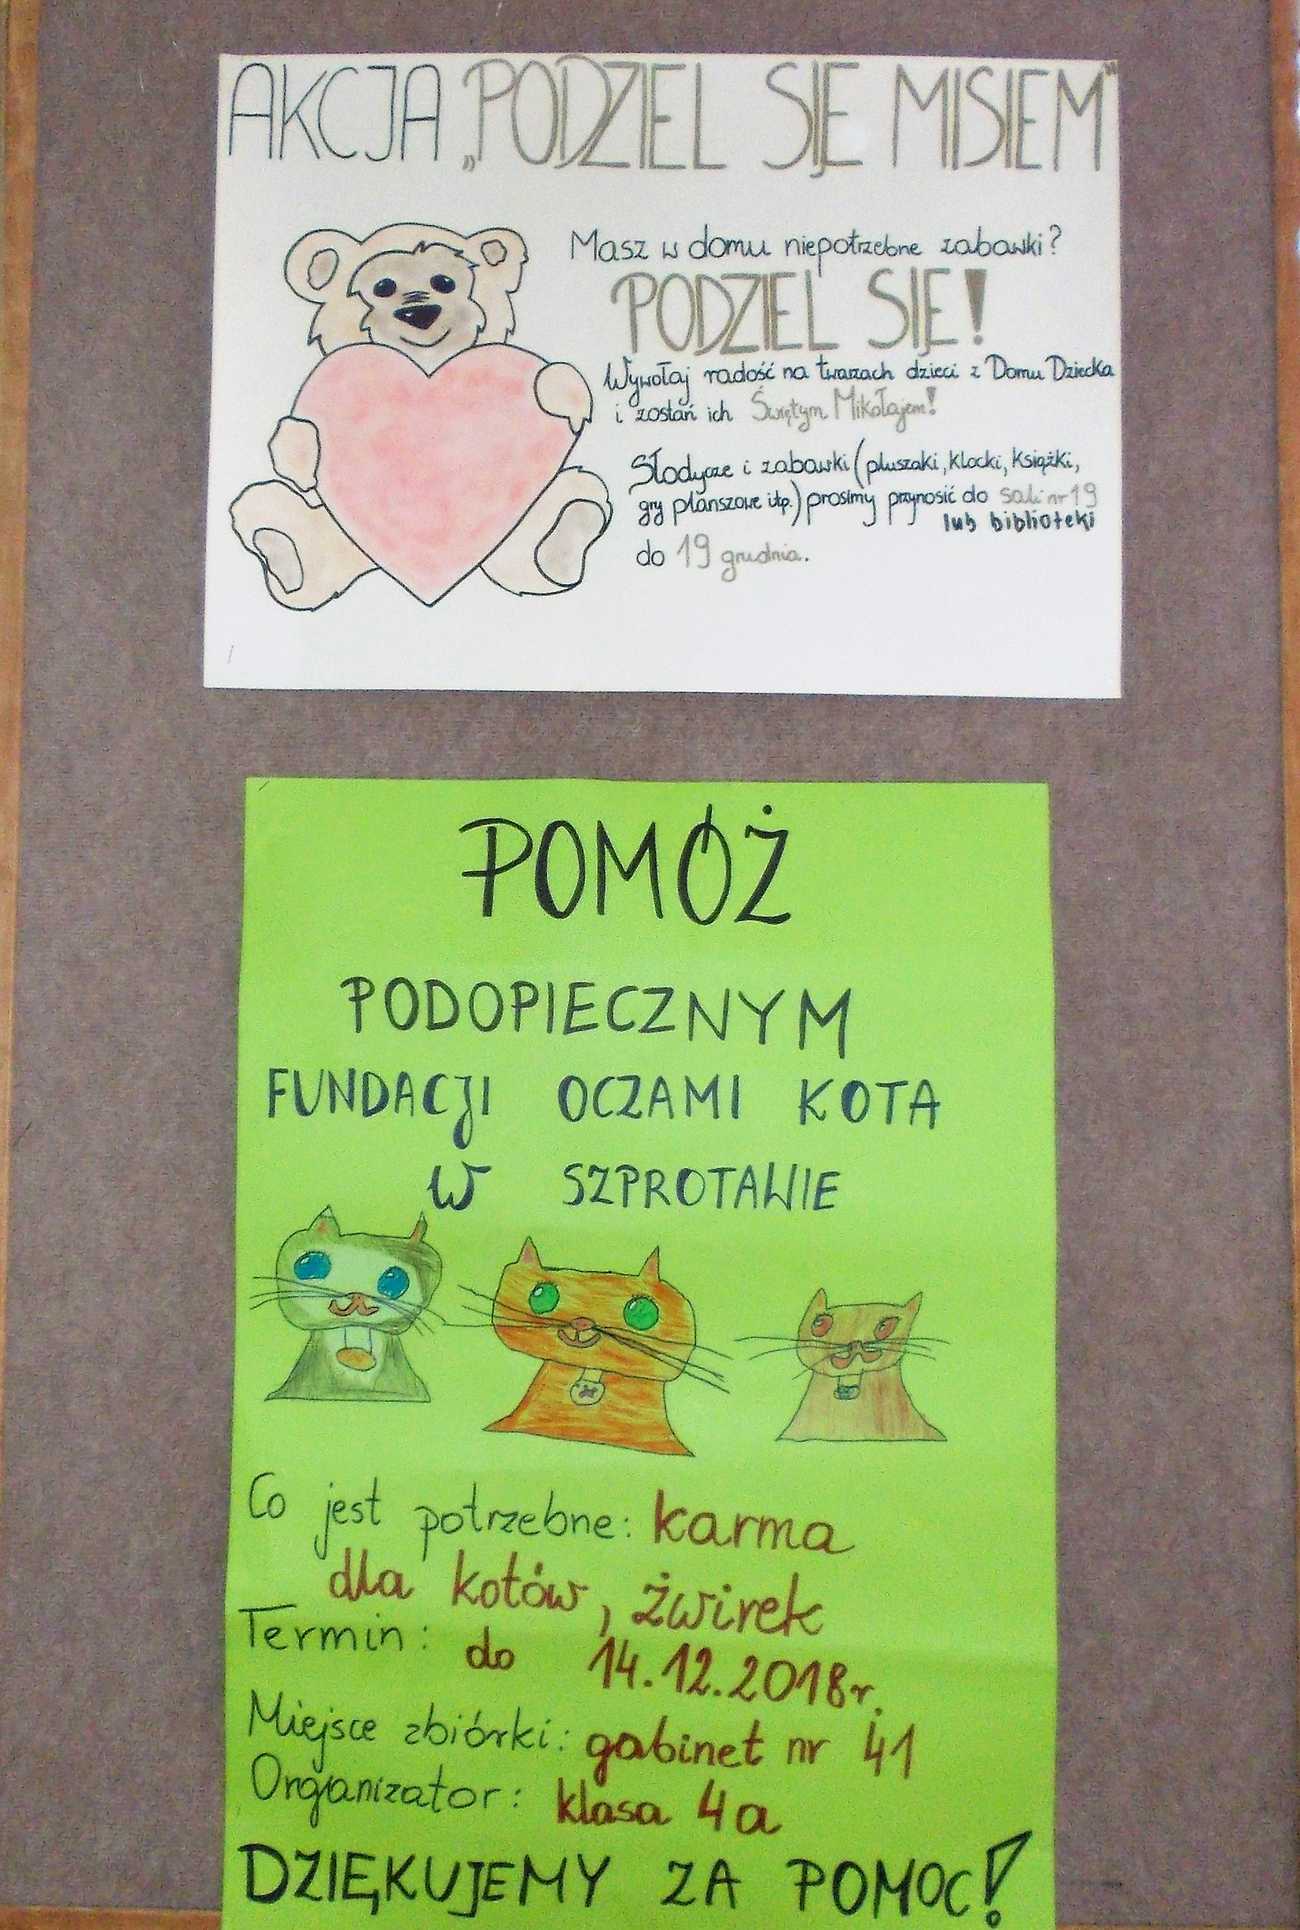 AKCJA „PODZIEL SIĘ MISIEM”
Masz w domu niepotrzebne zabawki?
PODZIEL SIĘ!
Wywołaj radość na twarzach dzieci z Domu Dziecka
i zostań ich Świętym Mikołajem!
Słodycze i zabawki (pluszaki, klocki, książki,
gry planszowe itp.) prosimy przynosić do sali nr 19
lub biblioteki
do 19 grudnia.
POMÓŻ
PODOPIECZNYM
FUNDACJI OCZAMI KOTA
W SZPROTAWIE
Co jest potrzebne: karma
dla kotów, żwirek
Termin: do 14.12.2018r.
Miejsce zbiórki: gabinet nr 41
Organizator: klasa 4a
DZIĘKUJEMY ZA POMOC!